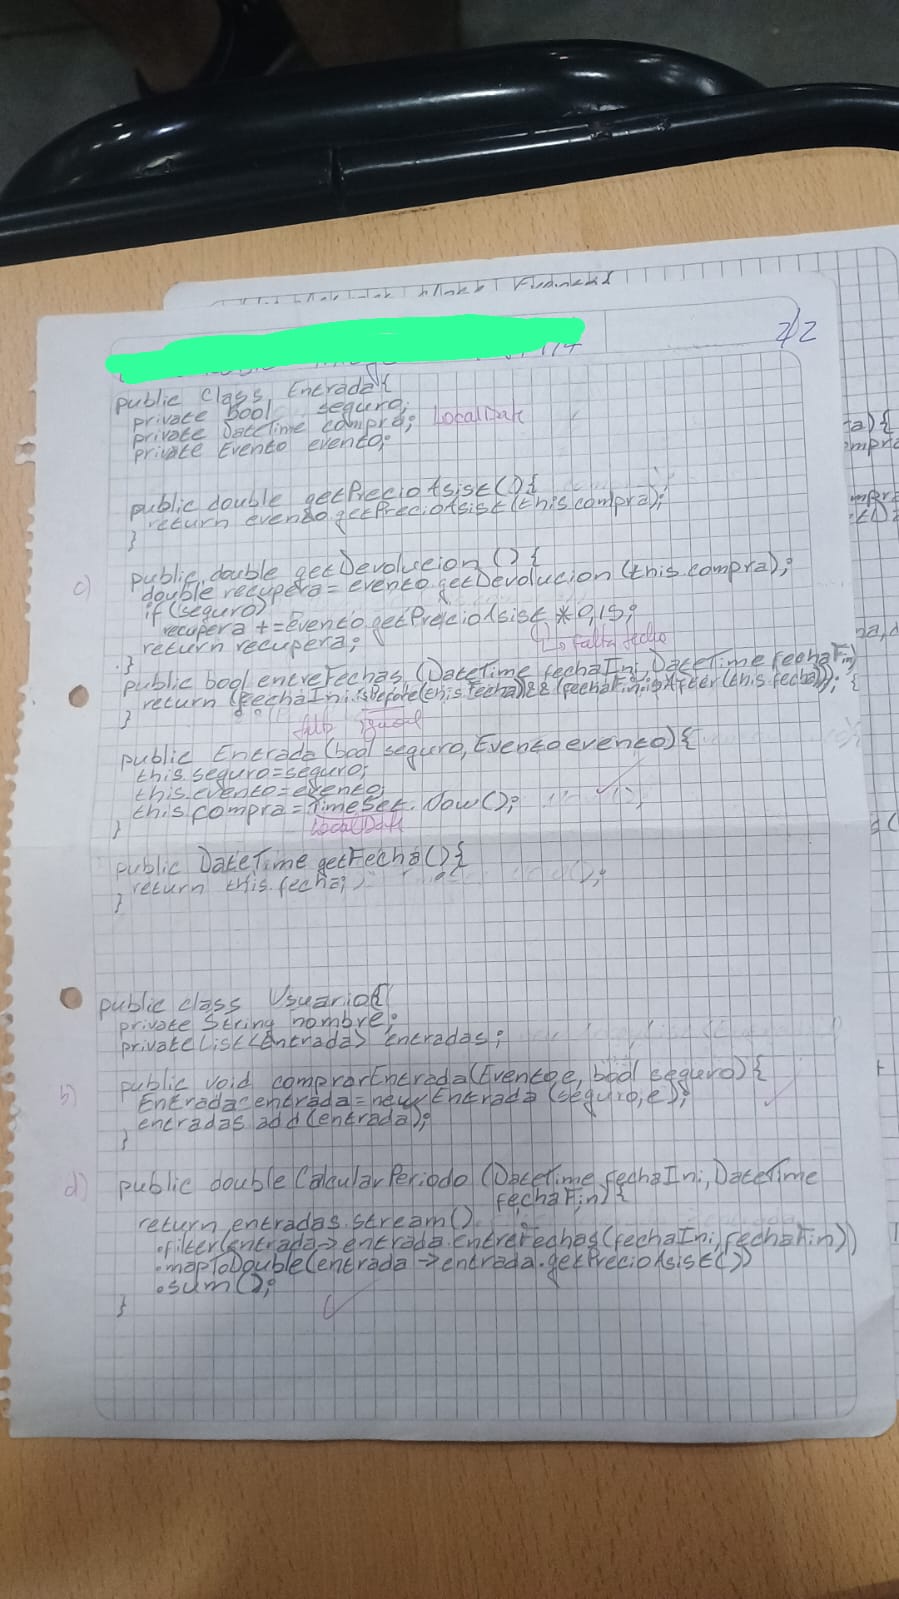 2/2
public Class Entrada{
private bool seguro;
private DateTime compra; LocalDate
private Evento evento;
public double getPrecioAsist(){
return evento.getPrecioAsist(this.compra);
}
c) public double getDevolucion(){
double recupera = evento.getDevolucion(this.compra);
if(seguro)
recupera += evento.getPrecioAsist * 0,15;
↳ falta fecha
return recupera;
}
public bool entreFechas (DateTime fechaIni, DateTime fechaFin)
return (fechaIni.isBefore(this.fecha)&&(fechaFin.isAfter(this.fecha)); {
falta
}
public Entrada(bool seguro, Evento evento){
this.seguro=seguro;
this.evento=evento;
this.compra=TimeSet.Now();
LocalDate
}
public DateTime getFecha(){
return this.fecha;
}
public class Usuario{
private String nombre;
private List<Entrada> entradas;
b) public void comprarEntrada(Evento e, bool seguro){
Entrada entrada=new Entrada(seguro,e);
entradas.add(entrada);
}
d) public double CalcularPeriodo (DateTime fechaIni, DateTime
fechaFin){
return entradas.stream()
.filter(entrada->entrada.entreFechas(fechaIni,fechaFin))
.mapToDouble(entrada->entrada.getPrecioAsist())
.sum();
}